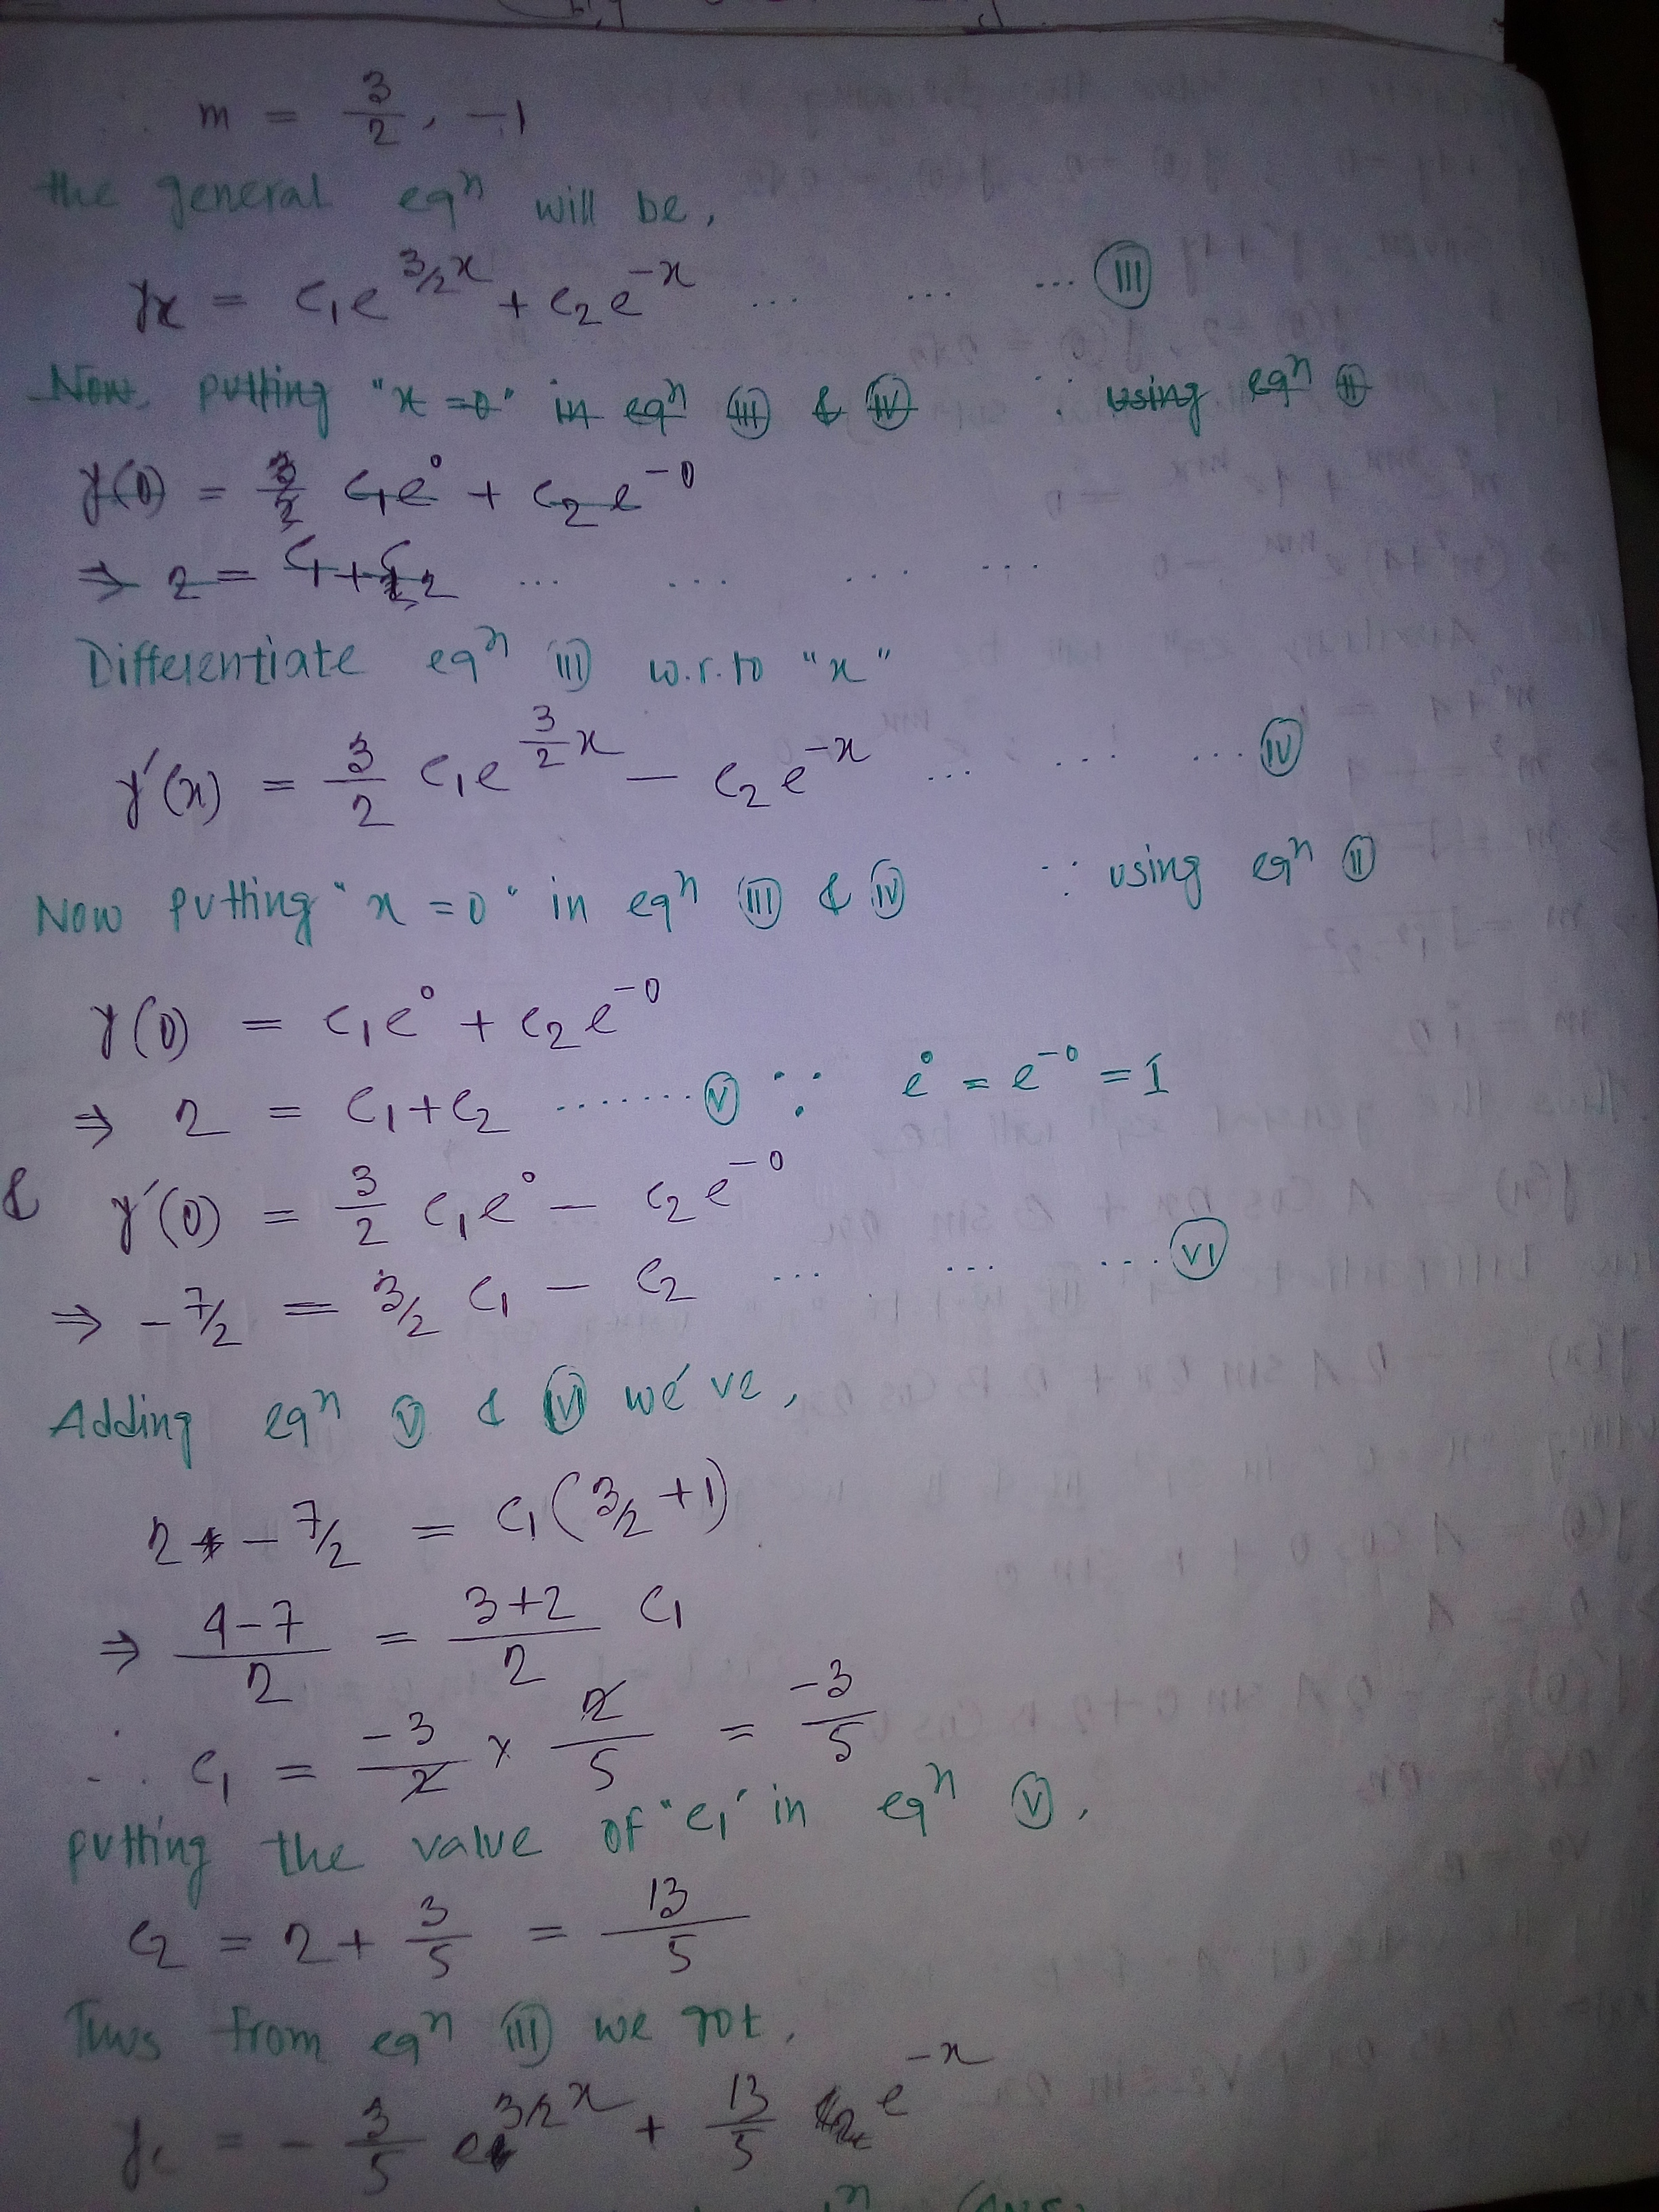 ∴ m = 3/2, -1
the general eqⁿ will be,
yx = c₁e^(3/2 x) + c₂e^(-x) ... ... ... (III)
Now, putting "x = 0" in eqⁿ (III) & (IV) ∵ using eqⁿ (II)
y(0) = 3/2 c₁e⁰ + c₂e^(-0)
⇒ 2 = c₁+c₂ ... ... ... ...
Differentiate eqⁿ (III) w.r.to "x"
y′(x) = 3/2 c₁e^(3/2 x) − c₂e^(-x) ... ... ... (IV)
Now putting "x = 0" in eqⁿ (III) & (IV) ∵ using eqⁿ (II)
y(0) = c₁e⁰ + c₂e^(-0)
⇒ 2 = c₁+c₂ ........ (V) ∵ e⁰ = e^(-0) = 1
& y′(0) = 3/2 c₁e⁰ − c₂e^(-0)
⇒ -7/2 = 3/2 c₁ − c₂ ... ... ... (VI)
Adding eqⁿ (V) & (VI) we've,
2 - 7/2 = c₁(3/2 +1)
⇒ (4-7)/2 = (3+2)/2 c₁
∴ c₁ = -3/2 × 2/5 = -3/5
putting the value of "c₁" in eqⁿ (V),
c₂ = 2 + 3/5 = 13/5
Thus from eqⁿ (III) we got,
= - 3/5 e^(3/2 x) + 13/5 e^(-x)
(Ans: